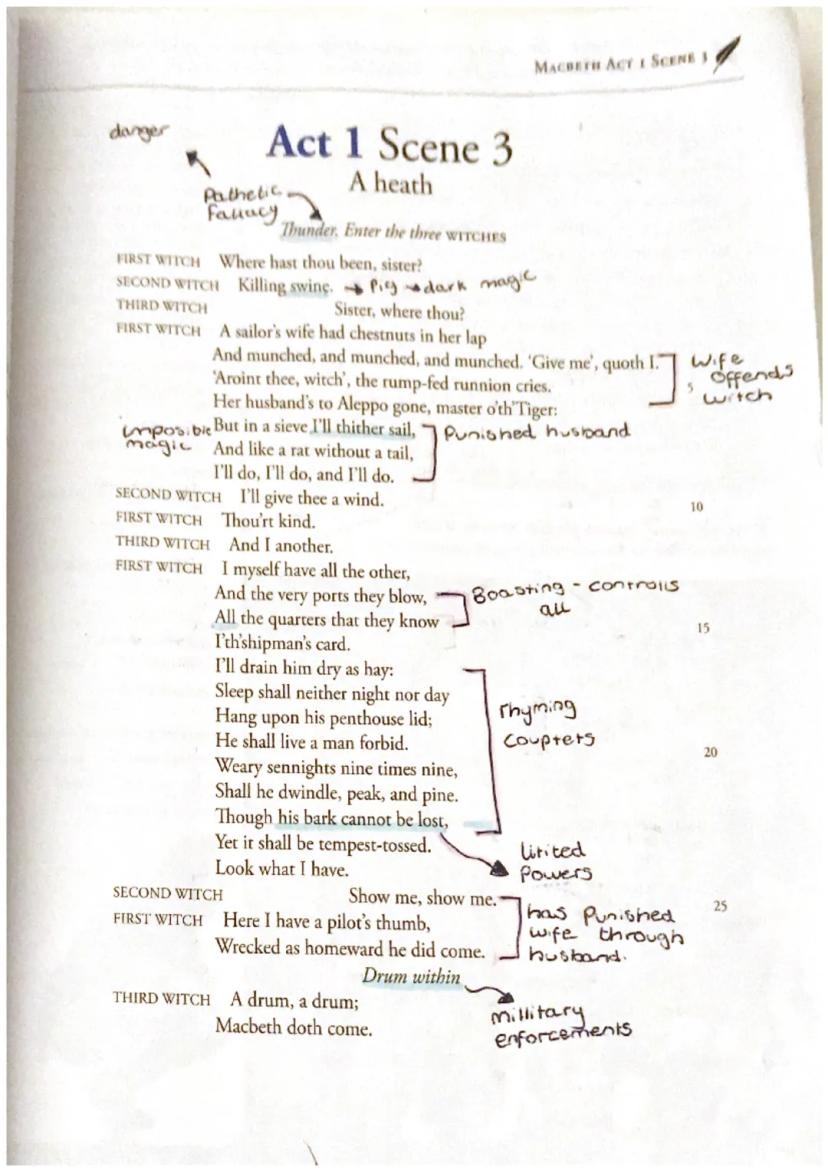 MACBETH ACT 1 SCENE 3
danger
Act 1 Scene 3
A heath
Pathetic
Fallacy
Thunder. Enter the three WITCHES
FIRST WITCH Where hast thou been, sister?
SECOND WITCH Killing swine. → Pig → dark magic
THIRD WITCH Sister, where thou?
FIRST WITCH A sailor's wife had chestnuts in her lap
And munched, and munched, and munched. 'Give me', quoth I.
'Aroint thee, witch', the rump-fed runnion cries. 5
Her husband's to Aleppo gone, master o'th'Tiger:
wife
offends
witch
imposible
magic
But in a sieve I'll thither sail,
And like a rat without a tail,
I'll do, I'll do, and I'll do.
Punished husband
SECOND WITCH I'll give thee a wind. 10
FIRST WITCH Thou'rt kind.
THIRD WITCH And I another.
FIRST WITCH I myself have all the other,
And the very ports they blow,
All the quarters that they know 15
I'th'shipman's card.
Boasting - controlls
all
I'll drain him dry as hay:
Sleep shall neither night nor day
Hang upon his penthouse lid;
He shall live a man forbid. 20
Weary sennights nine times nine,
Shall he dwindle, peak, and pine.
Though his bark cannot be lost,
Yet it shall be tempest-tossed.
Look what I have.
rhyming
couplets
limited
powers
SECOND WITCH Show me, show me. 25
FIRST WITCH Here I have a pilot's thumb,
Wrecked as homeward he did come.
has Punished
wife through
husband.
Drum within
THIRD WITCH A drum, a drum;
Macbeth doth come.
millitary
enforcements